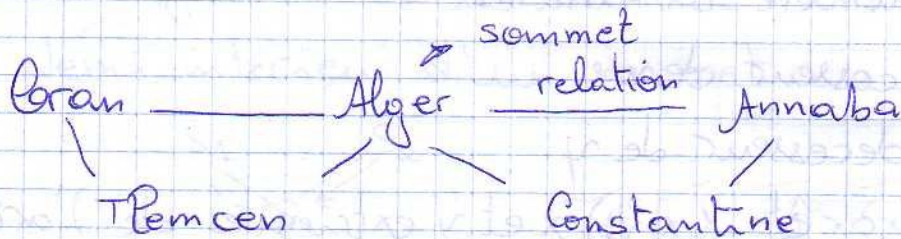 sommet
Oran Alger relation Annaba
Tlemcen Constantine